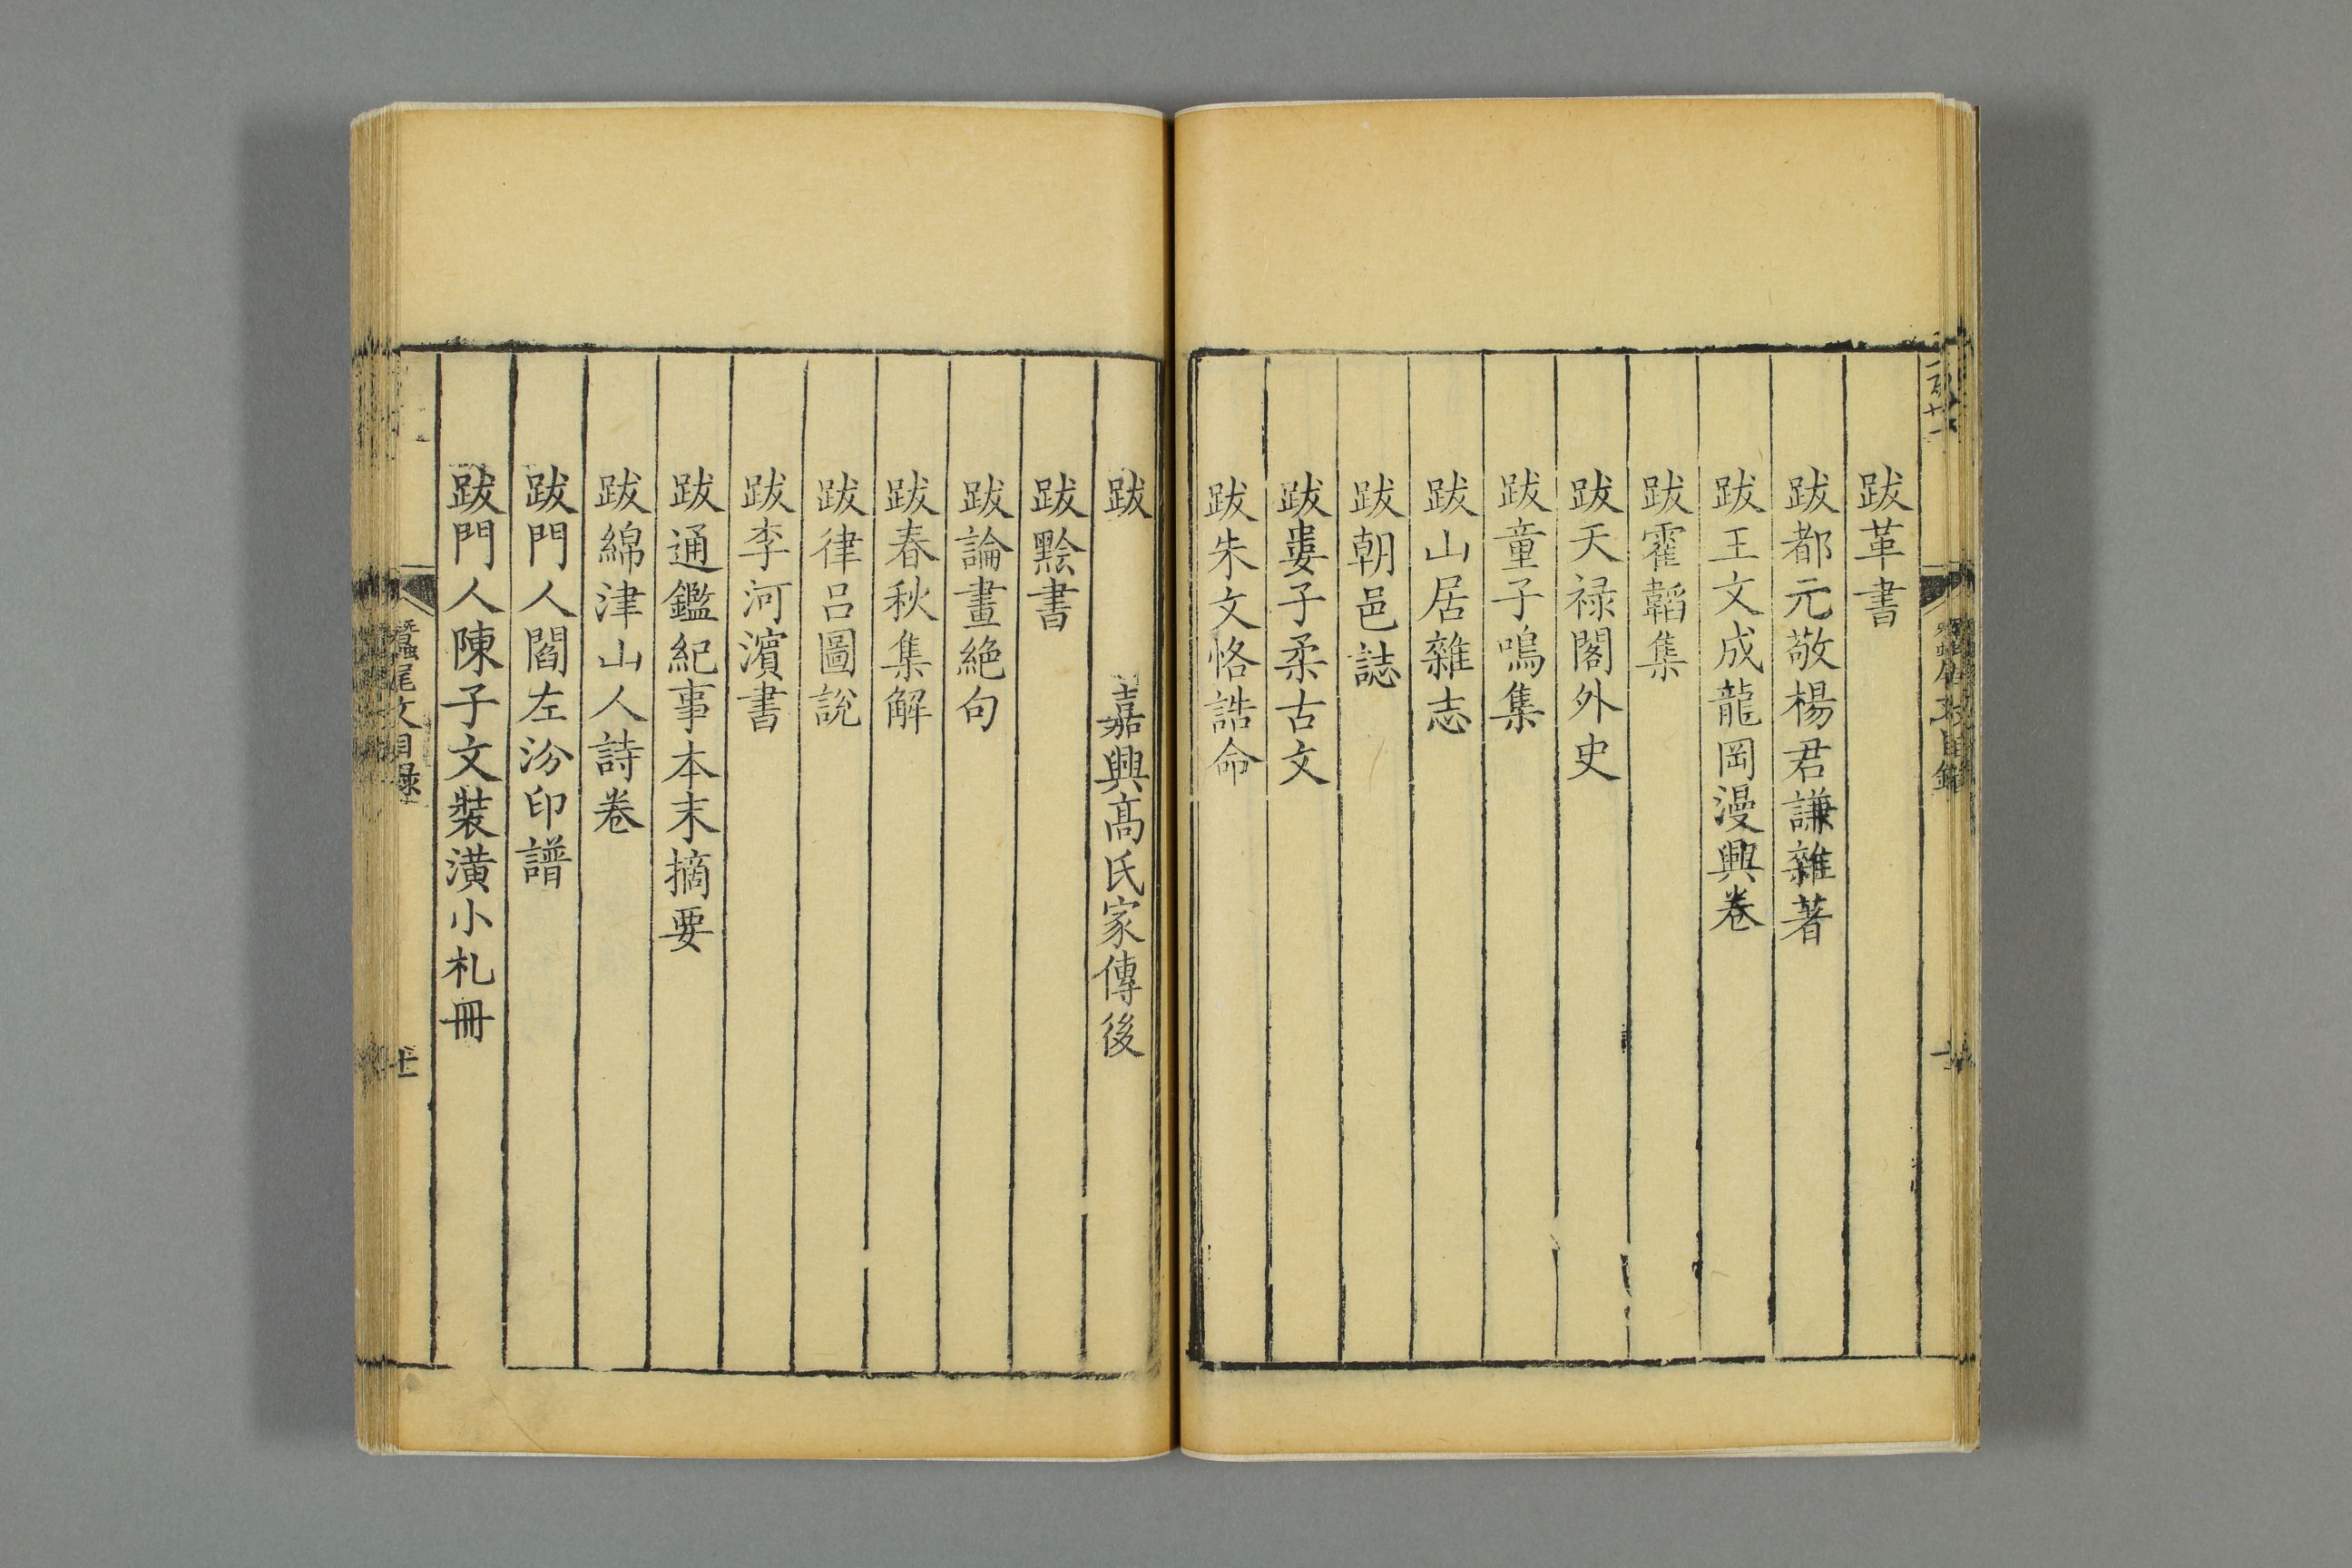 跋革書
跋都元敬楊君謙雜著
跋王文成龍岡漫興卷
跋霍韜集
跋天祿閣外史
跋童子鳴集
跋山居雜志
跋朝邑誌
跋婁子柔古文
跋朱文恪誥命
跋 嘉興高氏家傳後
跋黔書
跋論畫絶句
跋春秋集解
跋律呂圖說
跋李河濱書
跋通鑑紀事本末摘要
跋綿津山人詩卷
跋門人閻左汾印譜
跋門人陳子文裝潢小札冊
蠶尾文目錄